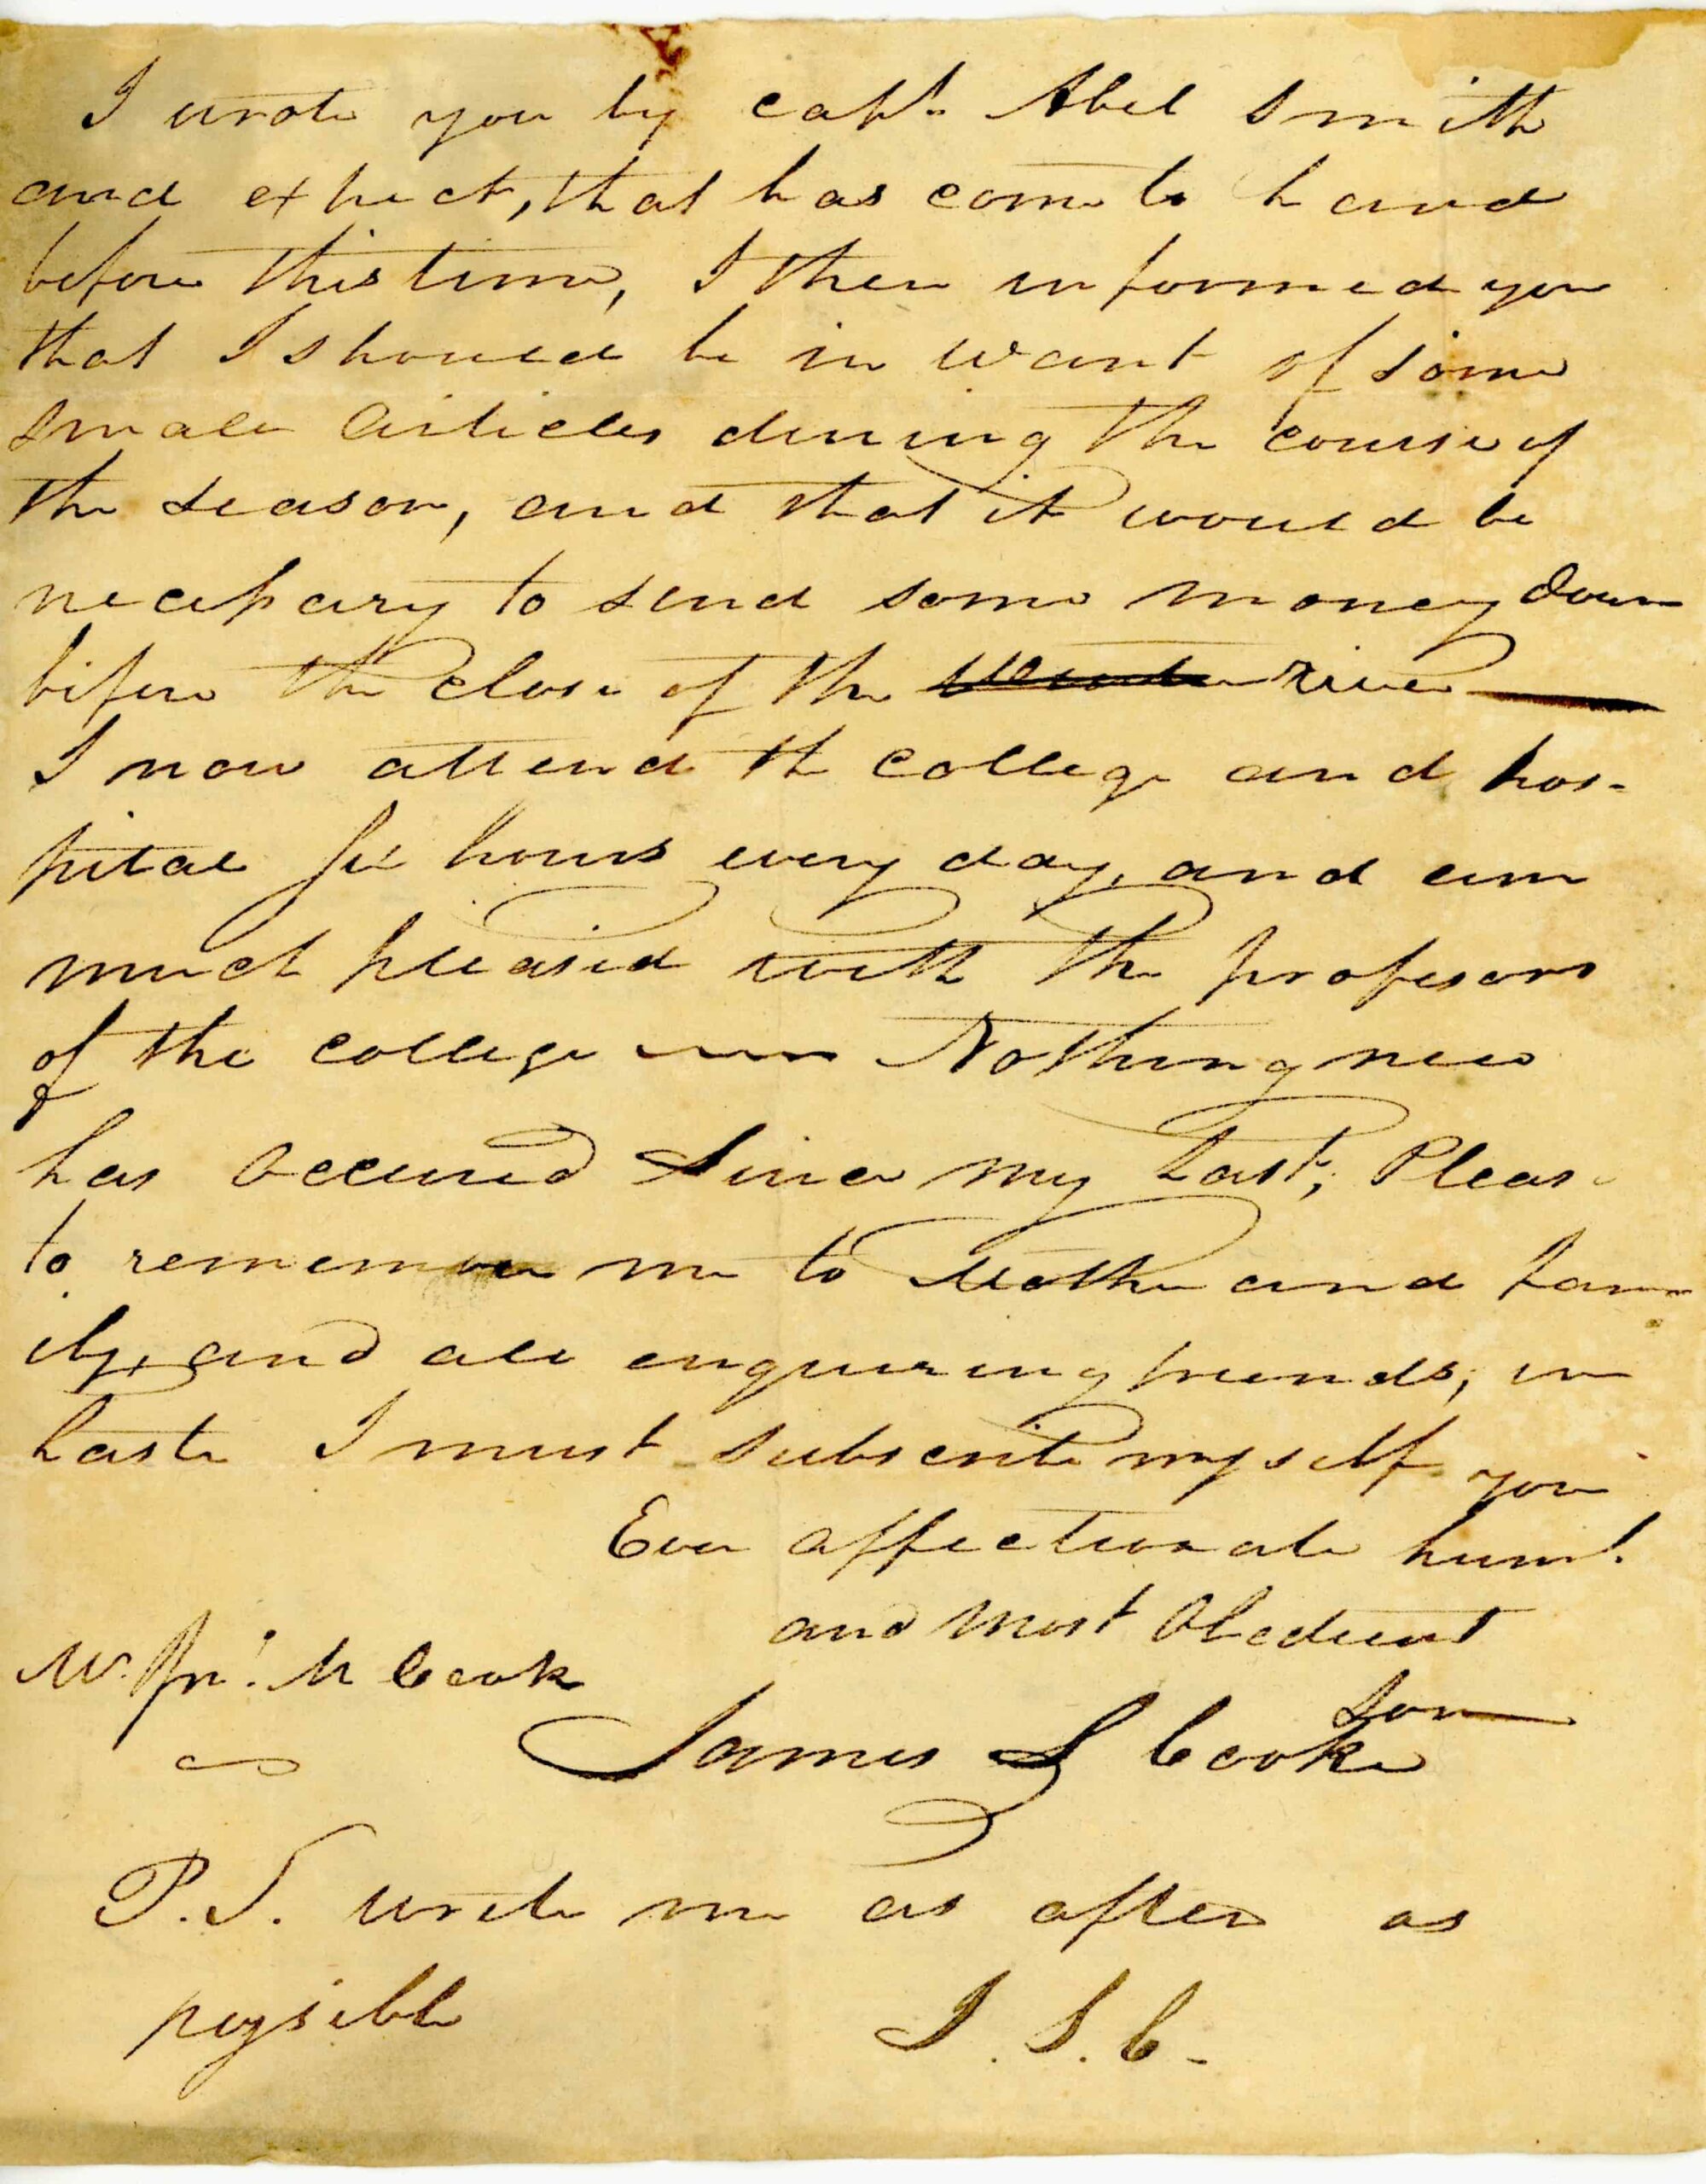 I wrote you by capt. Abel Smith
and expect, that has come to hand
before this time, I then informed you
that I should be in want of some
small articles during the course of
the season, and that it would be
necessary to send some money down
before the close of the river
I now attend the college and hos-
pital six hours every day, and am
much pleased with the profesors
of the college Nothing new
has occured Since my last; Please
to remember me to Mother and fam
ily, and all enquiring friends, in
haste I must subscribe myself your
Ever affectionate humb.
and most Obedient
Son
Mr. Jn.º M Cook
James S Cook
P.S. write me as often as
possible J. S. C.